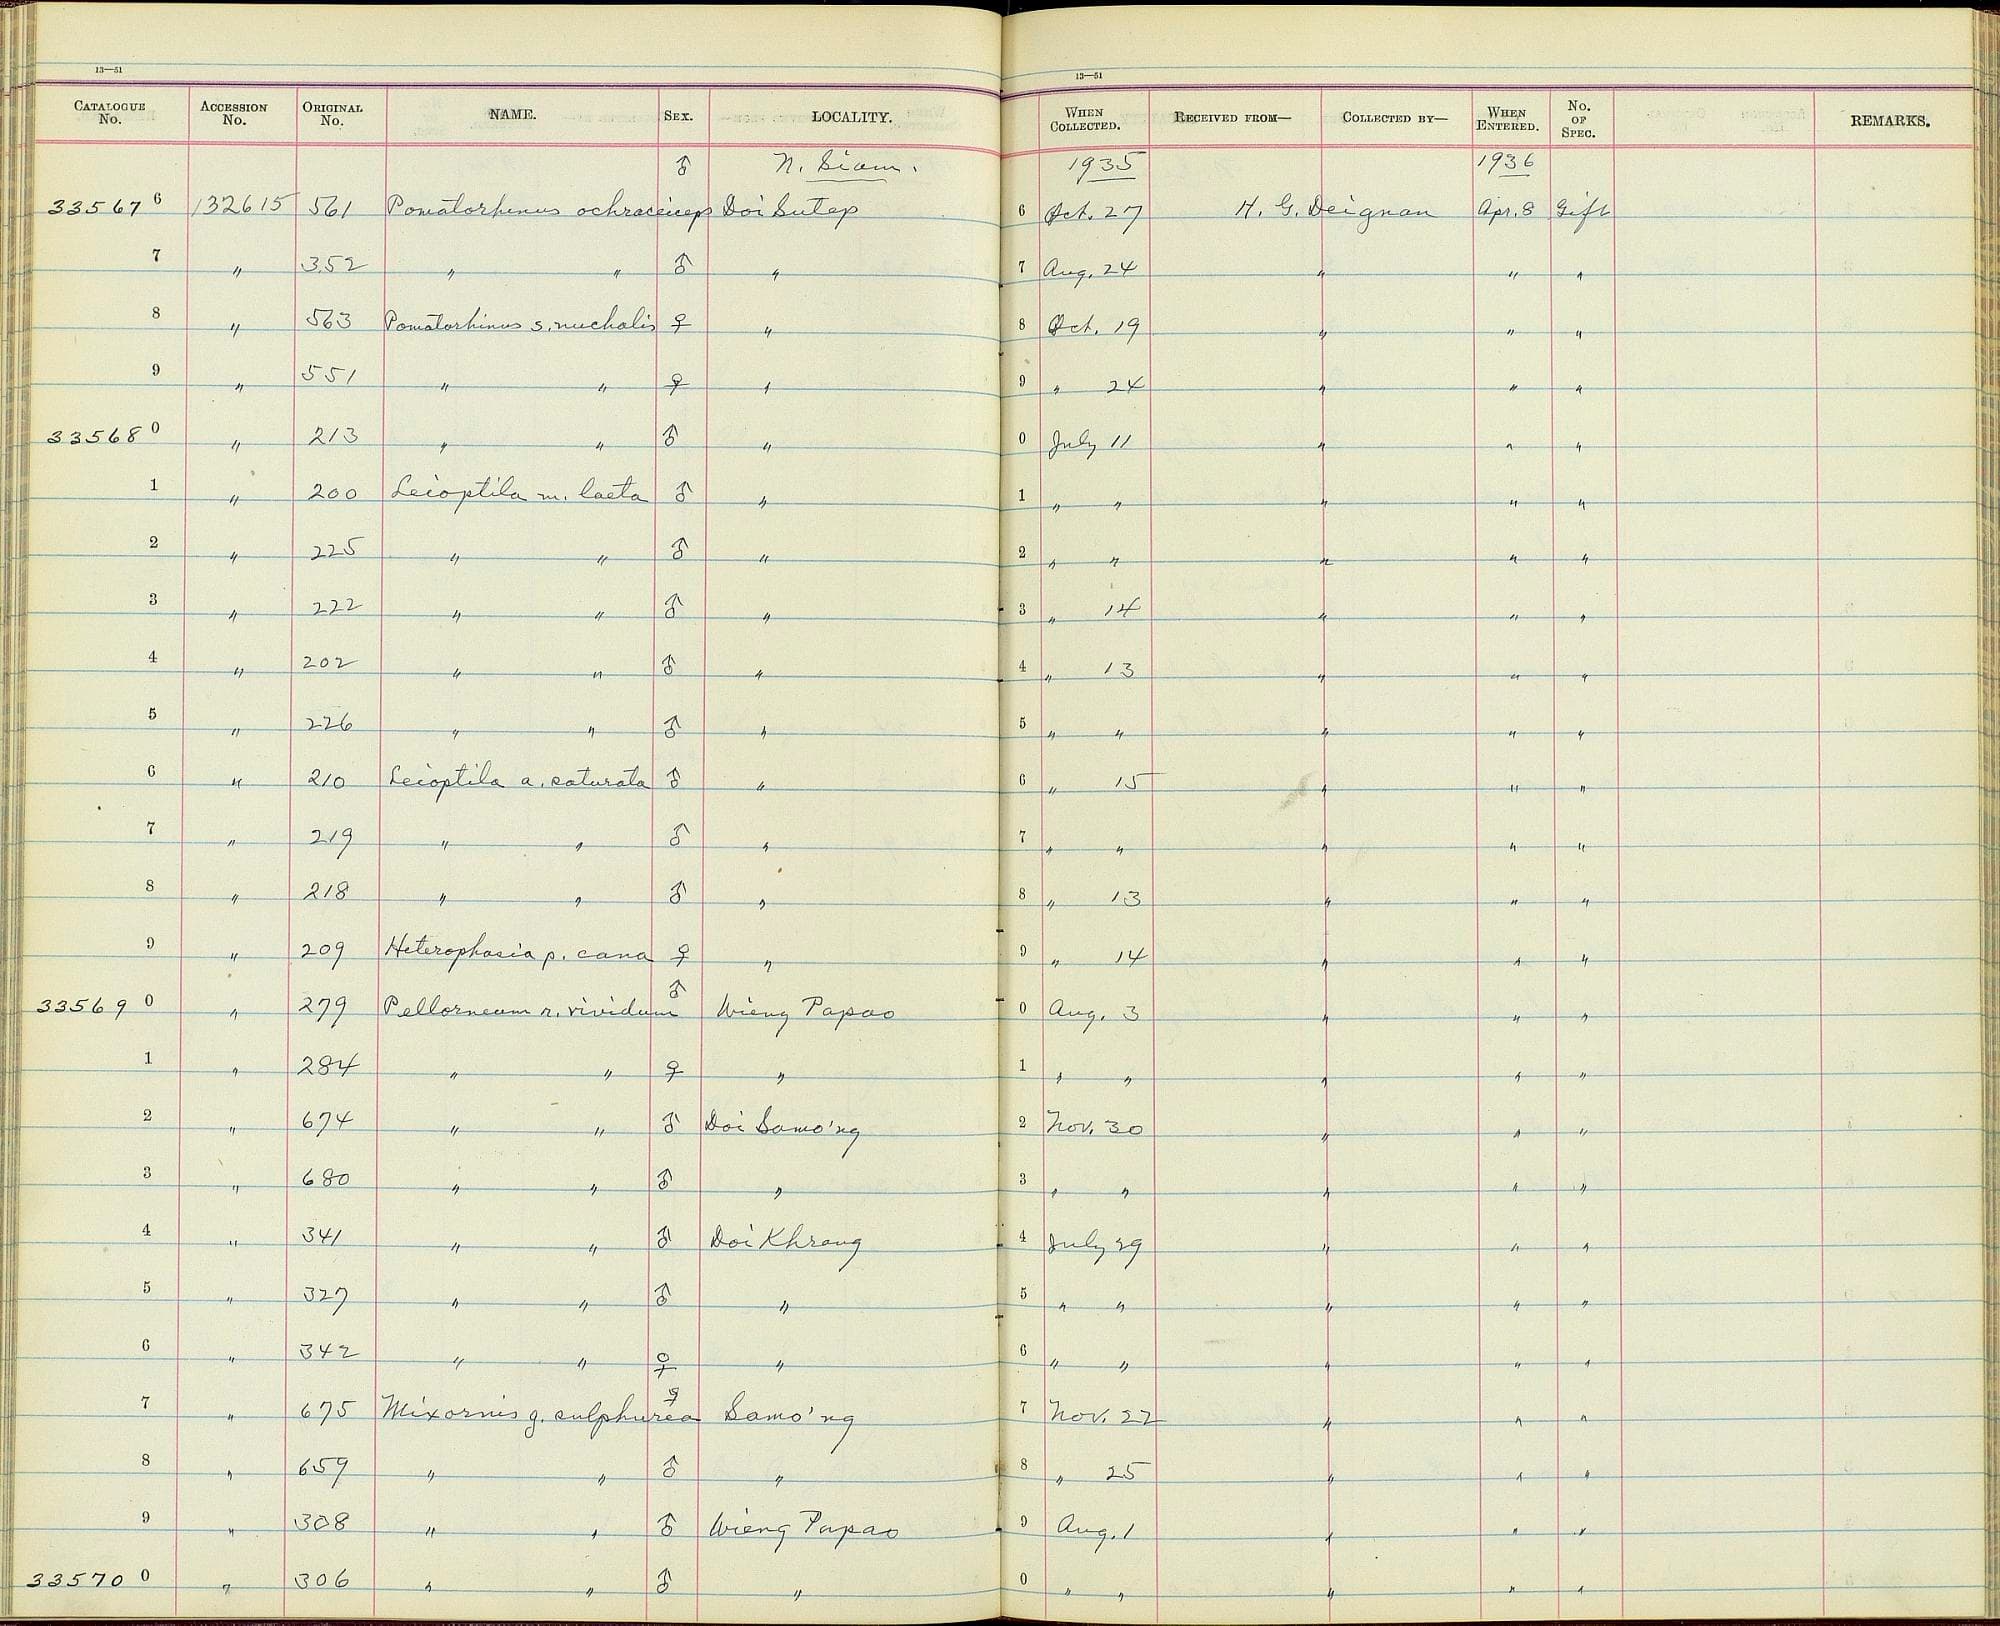 13—51 13—51
CATALOGUE No. ACCESSION No. ORIGINAL No. NAME. SEX. LOCALITY. WHEN COLLECTED. RECEIVED FROM— COLLECTED BY— WHEN ENTERED. No. OF SPEC. REMARKS.
♂ N. Siam. 1935 1936
33567 6 132615 561 Pomatorhinus ochraceiceps Doi Sutep 6 Oct. 27 H. G. Deignan Apr. 8 Gift
7 " 352 " " ♂ " 7 Aug. 24 " " "
8 " 563 Pomatorhinus s. nuchalis ♀ " 8 Oct. 19 " " "
9 " 551 " " ♀ " 9 " 24 " " "
33568 0 " 213 " " ♂ " 0 July 11 " " "
1 " 200 Leioptila m. laeta ♂ " 1 " " " " "
2 " 225 " " ♂ " 2 " " " " "
3 " 222 " " ♂ " 3 " 14 " " "
4 " 202 " " ♂ " 4 " 13 " " "
5 " 226 " " ♂ " 5 " " " " "
6 " 210 Leioptila a. saturata ♂ " 6 " 15 " " "
7 " 219 " " ♂ " 7 " " " " "
8 " 218 " " ♂ " 8 " 13 " " "
9 " 209 Heterophasia p. cana ♀ " 9 " 14 " " "
33569 0 " 279 Pellorneum r. vividum ♂ Wieng Papao 0 Aug. 3 " " "
1 " 284 " " ♀ " 1 " " " " "
2 " 674 " " ♂ Doi Samo'ng 2 Nov. 30 " " "
3 " 680 " " ♂ " 3 " " " " "
4 " 341 " " ♂ Doi Khrang 4 July 29 " " "
5 " 327 " " ♂ " 5 " " " " "
6 " 342 " " ♀ " 6 " " " " "
7 " 675 Mixornis g. sulphurea ♀ Samo'ng 7 Nov. 22 " " "
8 " 659 " " ♂ " 8 " 25 " " "
9 " 308 " " ♂ Wieng Papao 9 Aug. 1 " " "
33570 0 " 306 " " ♂ " 0 " " " " "